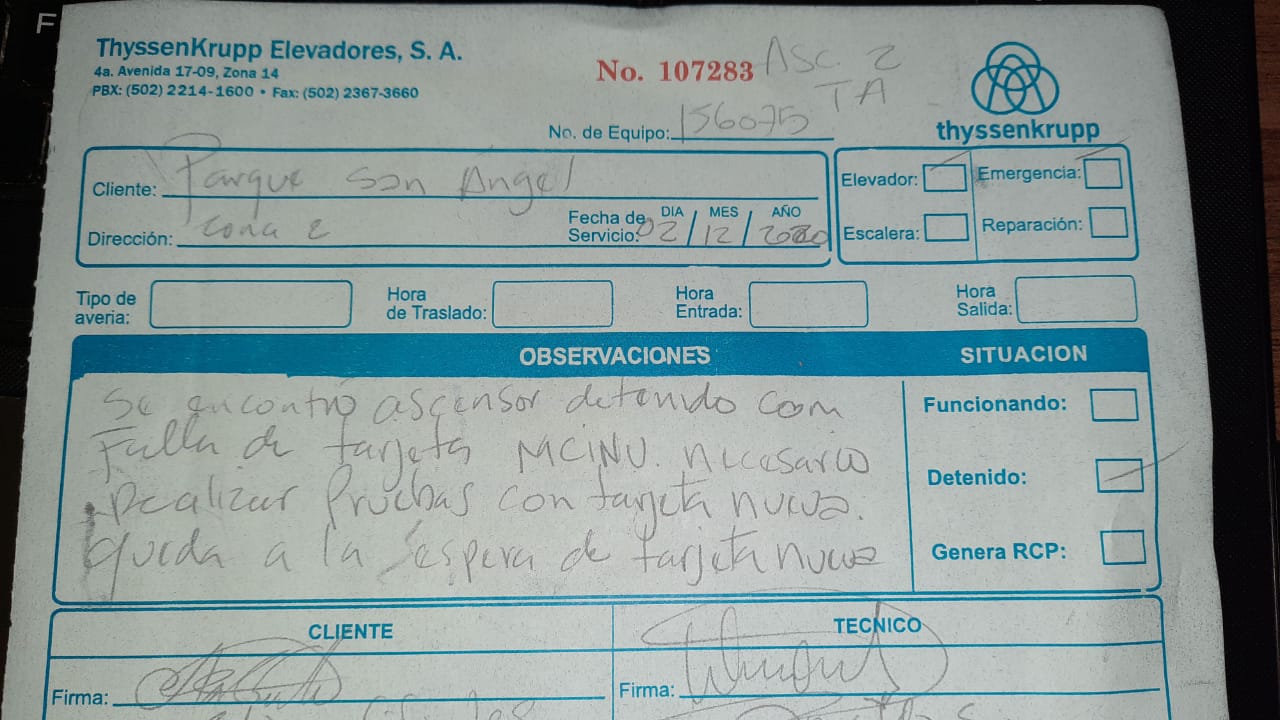 F
ThyssenKrupp Elevadores, S. A.
4a. Avenida 17-09, Zona 14
PBX: (502) 2214-1600 • Fax: (502) 2367-3660
No. 107283 ASC. 2
TA
No. de Equipo: 156075
thyssenkrupp
Cliente: Parque San Angel
Dirección: zona 2
Fecha de Servicio: DIA MES AÑO
02/12/2020
Elevador:
Emergencia:
Escalera:
Reparación:
Tipo de averia:
Hora de Traslado:
Hora Entrada:
Hora Salida:
OBSERVACIONES
SITUACION
Se encontró ascensor detenido com
Falla de tarjeta MCINU. necesario
realizar Pruebas con tarjeta nueva.
queda a la espera de tarjeta nueva
Funcionando:
Detenido:
Genera RCP:
CLIENTE
TECNICO
Firma:
Firma: